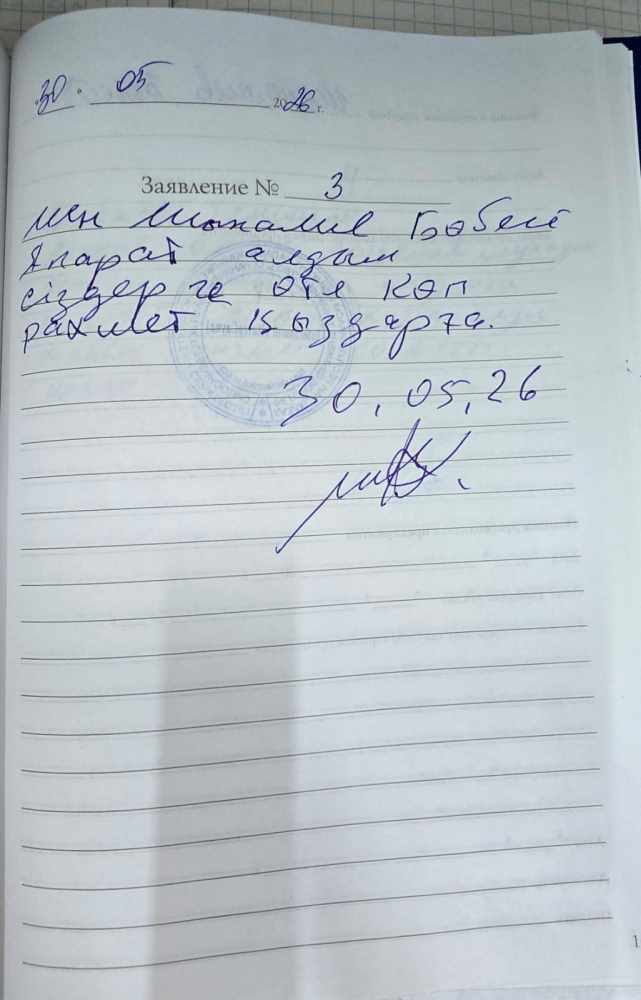 30. 05 2026 г.
Заявление № 3
мен Шыналив Бөбеш
Апарат алдым
сіздер ге өтя көп
рахмет қыздарға.
30,05,26
1